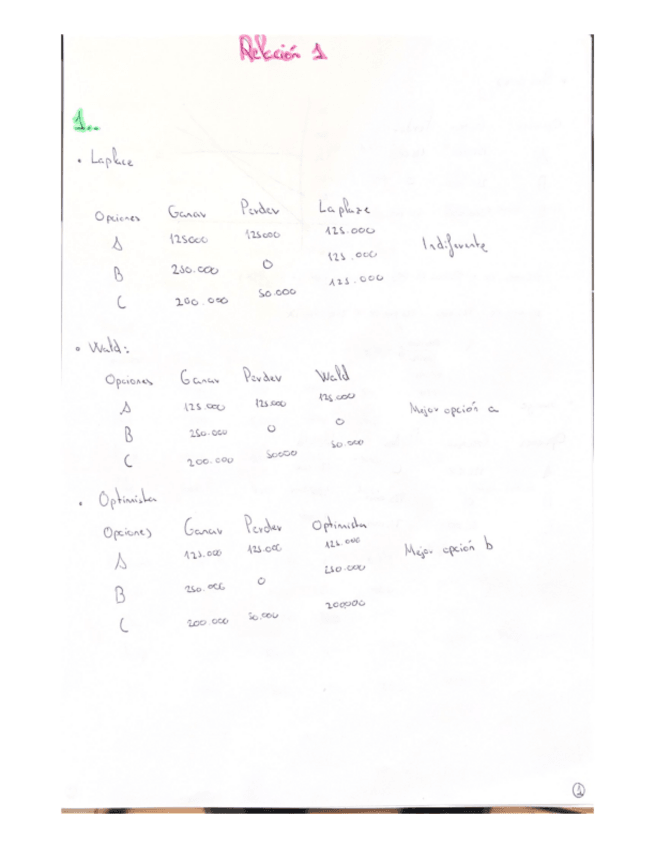 Relación 1
1..
• Laplace
Opciones Ganar Perder Laplaze
A 125000 125000 125.000
B 250.000 0 125.000 Indiferente
C 200.000 50.000 125.000
• Wald:
Opciones Ganar Perder Wald
A 125.000 125.000 125.000 Mejor opción a
B 250.000 0 0
C 200.000 50000 50.000
• Optimista
Opciones Ganar Perder Optimista
A 125.000 125.000 125.000 Mejor opción b
B 250.000 0 250.000
C 200.000 50.000 200000
1